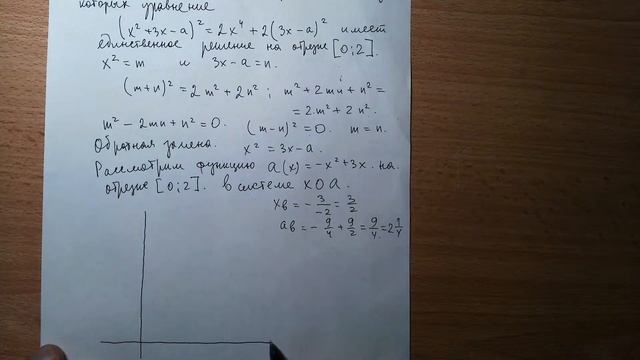 которых уравнение
(x²+3x-a)²=2x⁴+2(3x-a)² имеет
единственное решение на отрезке [0;2].
x²=m и 3x-a=n.
(m+n)²=2m²+2n²; m²+2mn+n²=
=2m²+2n².
m²-2mn+n²=0. (m-n)²=0. m=n.
Обратная замена. x²=3x-a.
Рассмотрим функцию a(x)=-x²+3x на
отрезке [0;2]. в системе XOA.
xв=-3/-2=3/2
aв=-9/4+9/2=9/4=2 1/4